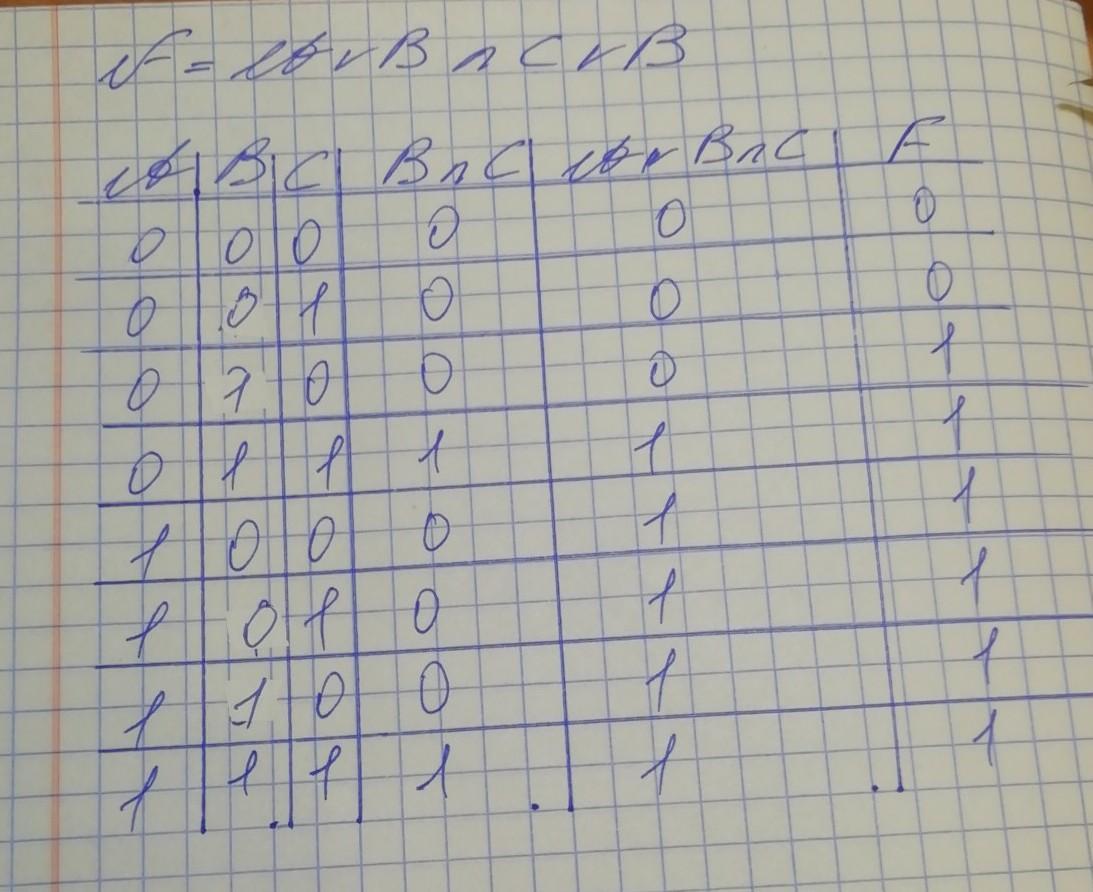 F = A v B ∧ C v B
A B C B ∧ C A v B ∧ C F
0 0 0 0 0 0
0 0 1 0 0 0
0 1 0 0 0 1
0 1 1 1 1 1
1 0 0 0 1 1
1 0 1 0 1 1
1 1 0 0 1 1
1 1 1 1 1 1